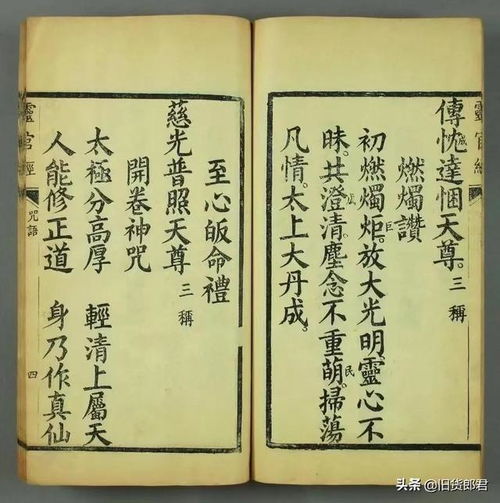 靈官經
傳忱達悃天尊。三稱
燃燭讚
初燃燭炬。巨放大光明靈心不
昧。共澄清。塵念不重萌。民掃蕩
凡情。太上大丹成。
至心皈命禮
慈光普照天尊 三稱
開卷神咒
太極分高厚 輕清上屬天
人能修正道 身乃作真仙
靈官經 咒語 四
头条 @旧货郎君